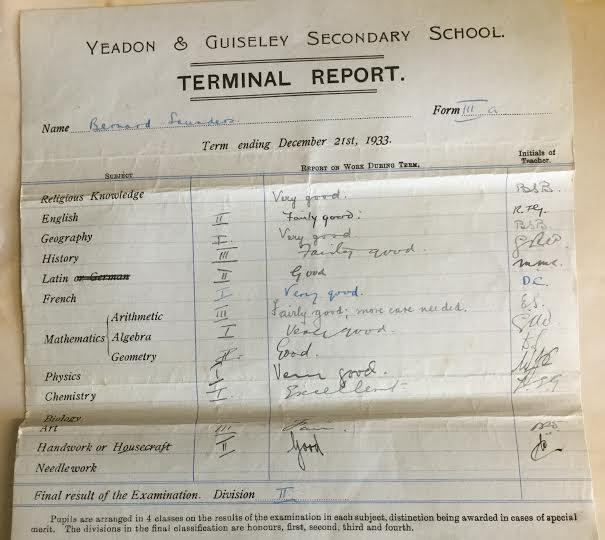 YEADON & GUISELEY SECONDARY SCHOOL.
TERMINAL REPORT.
Name Bernard Saunders. Form III a
Term ending December 21st, 1933.
SUBJECT REPORT ON WORK DURING TERM. Initials of Teacher.
Religious Knowledge Very good. BSB.
English II Fairly good.
Geography I. Very good BSB
History III Fairly good.
Latin or German II Good
French I Very good. DC.
Mathematics
Arithmetic III Fairly good; more care needed. ES.
Algebra I Very good.
Geometry Good.
Physics I Very good.
Chemistry I. Excellent
Biology
Art III Fair
Handwork or Housecraft II Good
Needlework
Final result of the Examination. Division II
Pupils are arranged in 4 classes on the results of the examination in each subject, distinction being awarded in cases of special
merit. The divisions in the final classification are honours, first, second, third and fourth.